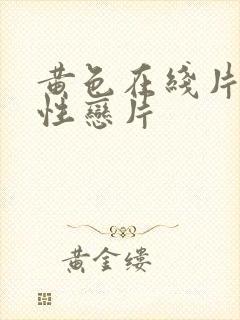 黄色在线片
性戀片
黄金缕